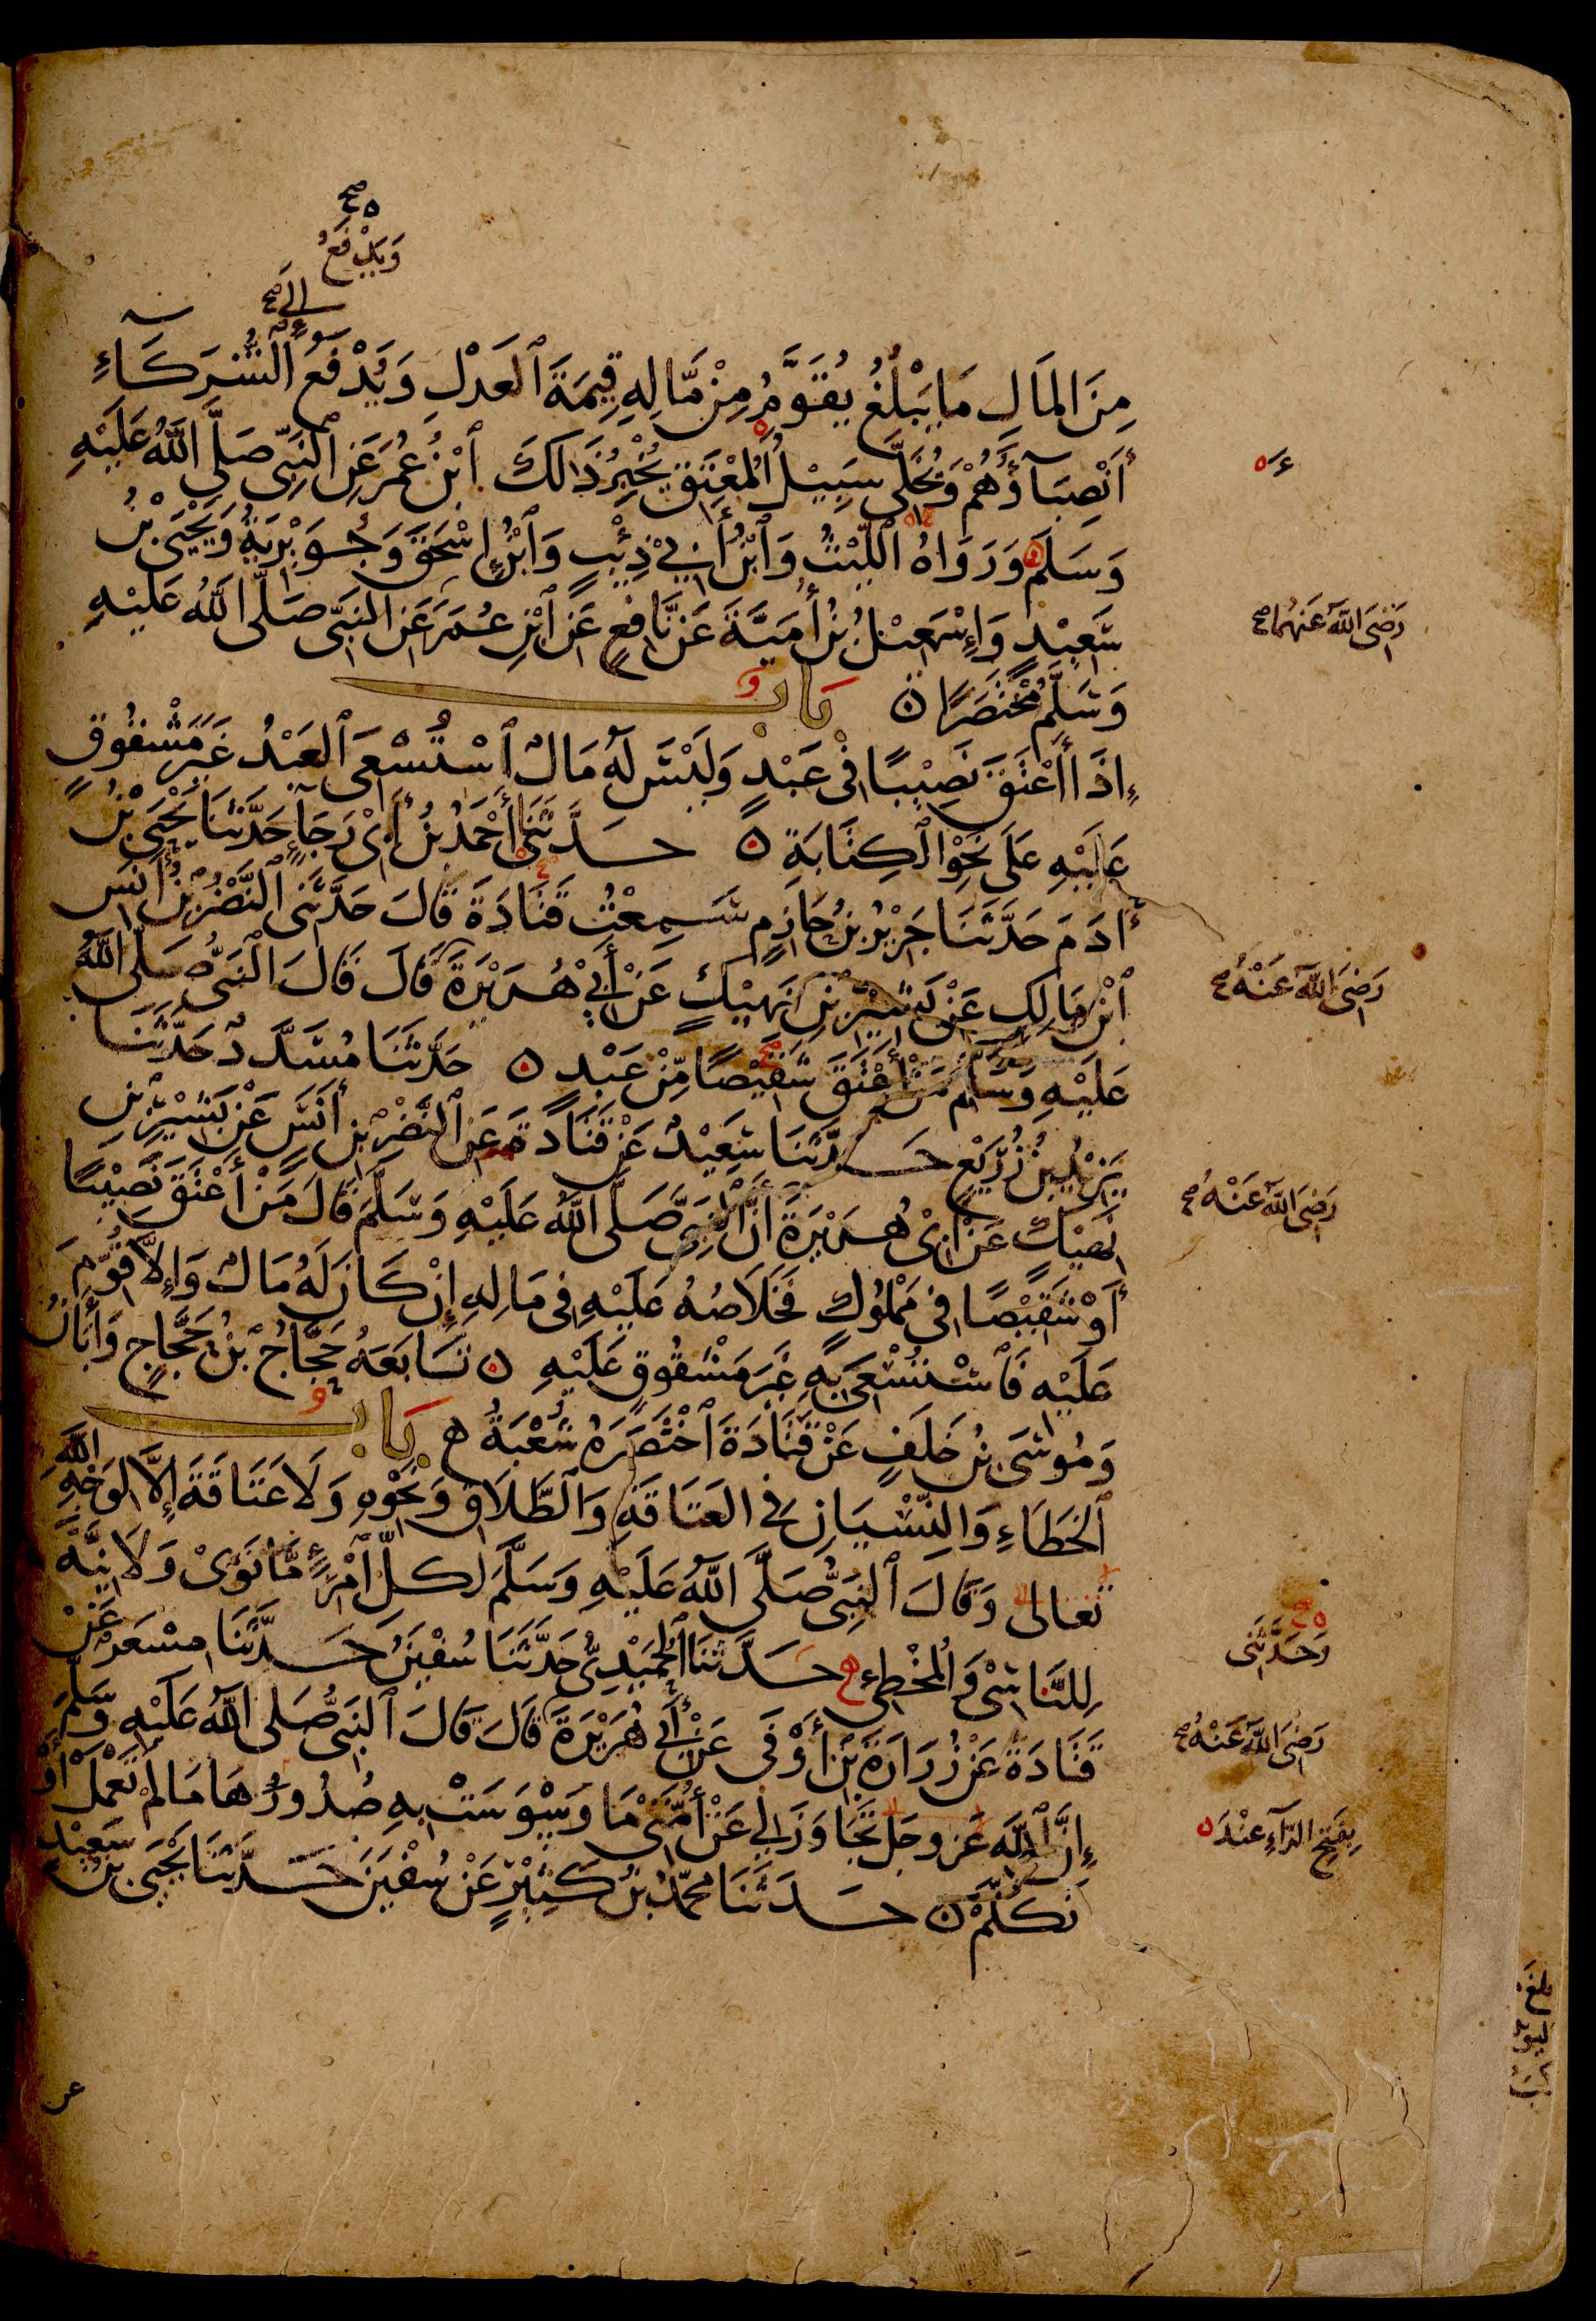 صح ه
وَيُدْفَعُ
إلى صح
مِنَ المَالِ مَا يَبْلُغُ يُقَوَّمُ مِنْ مَّالِهِ قِيمَةَ ٱلعَدْلِ وَيُدْفَعُ ٱلشُّرَكَاءِ
أَنْصِبَآؤُهُمْ وَيُخَلَّى سَبِيْلُ ٱلمُعْتَقِ يُخْبِرُ ذَالَكَ ٱبْنُ عُمَرَ عَنِ ٱلنَّبِيّ صَلَّى اللَّهُ عَلَيْهِ
وَسَلَّمَ وَرَوَاهُ اللَّيْثُ وَٱبْنُ أَبِي ذِئْبٍ وَٱبْنُ إِسْحَقَ وَجُوَيْرِيَةُ وَيَحْيَى بْنُ
سَعِيْدٍ وَإِسْمَعِيْلُ بْنُ أُمَيَّةَ عَنْ نَّافِعٍ عَنِ ٱبْنِ عُمَرَ عَنِ النَّبِيّ صَلَّى اللَّهُ عَلَيْهِ
وَسَلَّمَ مُخْتَصَرًا ه بَاب
إِذَا أَعْتَقَ نَصِيْبًا فِي عَبْدٍ وَلَيْسَ لَهُ مَالٌ ٱسْتُسْعِيَ ٱلعَبْدُ غَيْرَ مَشْقُوقٍ
عَلَيْهِ عَلَى نَحْوِ الكِتَابَةِ ه حَدَّثَنِي أَحْمَدُ بْنُ أَبِي رَجَآءٍ حَدَّثَنَا يَحْيَى بْنُ
آدَمَ حَدَّثَنَا جَرِيْرُ بْنُ حَازِمٍ سَمِعْتُ قَتَادَةَ قَالَ حَدَّثَنِي النَّضْرُ بْنُ أَنَسِ
ٱبْنِ مَالِكٍ عَنْ بَشِيْرِ بْنِ نَهِيْكٍ عَنْ أَبِي هُرَيْرَةَ قَالَ قَالَ النَّبِيُّ صَلَّى اللَّهُ
عَلَيْهِ وَسَلَّمَ مَنْ أَعْتَقَ شَقِيْصًا مِّنْ عَبْدٍ ه حَدَّثَنَا مُسَدَّدٌ حَدَّثَنَا
يَزِيْدُ بْنُ زُرَيْعٍ حَدَّثَنَا سَعِيْدٌ عَنْ قَتَادَةَ عَنِ ٱلنَّضْرِ بْنِ أَنَسٍ عَنْ بَشِيْرِ بْنِ
نَهِيْكٍ عَنْ أَبِي هُرَيْرَةَ أَنَّ النَّبِيَّ صَلَّى اللَّهُ عَلَيْهِ وَسَلَّمَ قَالَ مَنْ أَعْتَقَ نَصِيْبًا
أَوْ شَقِيْصًا فِي مَمْلُوكٍ فَخَلَاصُهُ عَلَيْهِ فِي مَالِهِ إِنْ كَانَ لَهُ مَالٌ وَإِلَّا قُوِّمَ
عَلَيْهِ فَٱسْتُسْعِيَ بِهِ غَيْرَ مَشْقُوقٍ عَلَيْهِ ه تَابَعَهُ حَجَّاجُ بْنُ حَجَّاجٍ وَأَبَانُ
وَمُوسَى بْنُ خَلَفٍ عَنْ قَتَادَةَ ٱخْتَصَرَهُ شُعْبَةُ ه بَاب
ٱلخَطَاءِ وَالنِّسْيَانِ فِي العَتَاقَةِ وَٱلطَّلَاقِ وَنَحْوِهِ وَلَا عَتَاقَةَ إِلَّا لِوَجْهِ اللَّهِ
تَعَالَى وَقَالَ ٱلنَّبِيُّ صَلَّى اللَّهُ عَلَيْهِ وَسَلَّمَ لِكُلِّ ٱمْرِءٍ مَّا نَوَى وَلَا نِيَّةَ
لِلنَّاسِيْ وَٱلمُخْطِئِ ه حَدَّثَنَا ٱلحُمَيْدِيُّ حَدَّثَنَا سُفْيَنُ حَدَّثَنَا مِسْعَرٌ عَنْ
قَتَادَةَ عَنْ زُرَارَةَ بْنِ أَوْفَى عَنْ أَبِي هُرَيْرَةَ قَالَ قَالَ ٱلنَّبِيُّ صَلَّى اللَّهُ عَلَيْهِ وَسَلَّمَ
إِنَّ ٱللَّهَ عَزَّ وَجَلَّ تَجَاوَزَ لِي عَنْ أُمَّتِي مَا وَسْوَسَتْ بِهِ صُدُورُهَا مَا لَمْ تَعْمَلْ أَوْ
تَكَلَّمْ ه حَدَّثَنَا مُحَمَّدُ بْنُ كَثِيْرٍ عَنْ سُفْيَنَ حَدَّثَنَا يَحْيَى بْنُ سَعِيْدٍ
رَضِيَ اللَّهُ عَنْهُمَا صح
رَضِيَ اللَّهُ عَنْهُ صح
رَضِيَ اللَّهُ عَنْهُ صح
وَحَدَّثَنِي
رَضِيَ اللَّهُ عَنْهُ صح
بِفَتْحِ الرَّآءِ عِنْدَ ه
عن